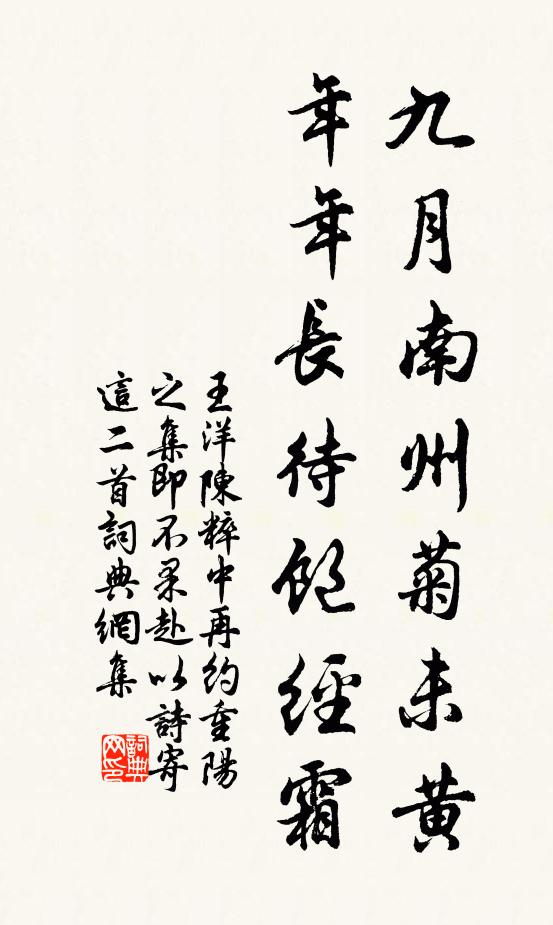 九月南州菊未黄
年年長待飽經霜
王洋陳粹中再約重陽
之集即不果赴以詩寄
這二首詞典網集
詞典網印